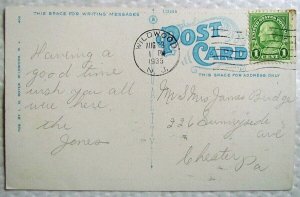 THIS SPACE FOR WRITING MESSAGES
POST CARD
WILDWOOD
AUG
1 PM
1933
N.J.
1 CENT 1
THIS SPACE IS FOR ADDRESS ONLY
Having a
good time
wish you all
were here
the
Jones
Mr & Mrs James Budge
226 Sunnyside
ave
Chester
Pa